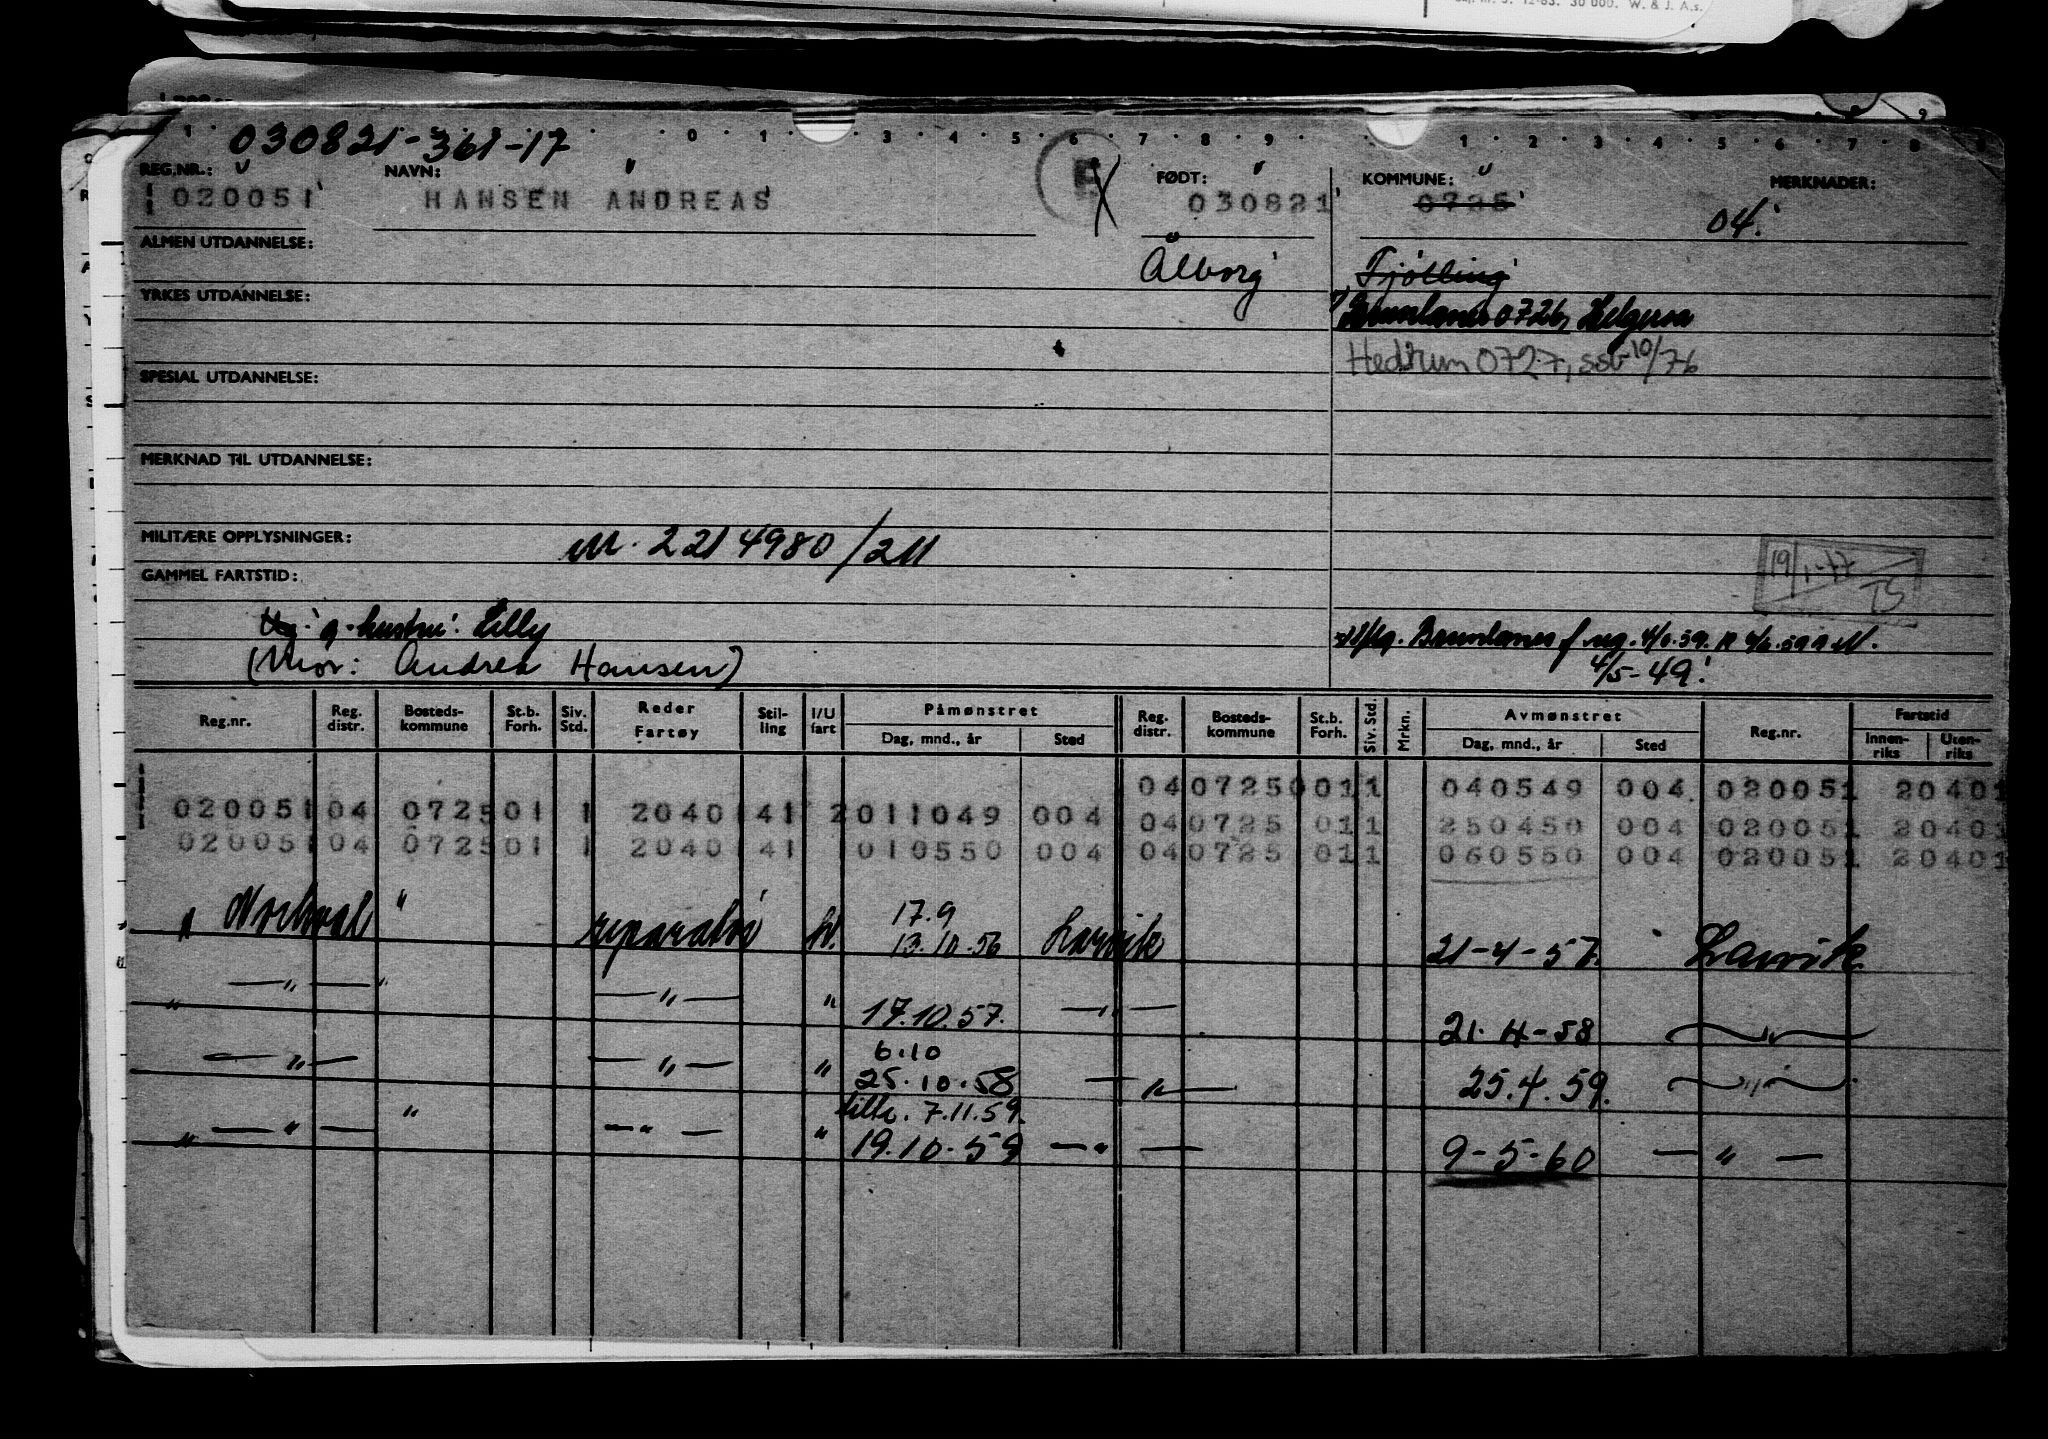 30 000. W. & J. A.s.
030821-361-17
REG.NR.: NAVN: FØDT: KOMMUNE: MERKNADER:
020051 HANSEN ANDREAS 030821 0725
04.
ALMEN UTDANNELSE:
Ålborg Tjölling
YRKES UTDANNELSE:
Brunlanes 0726, Helgeroa
Hedrum 0727, ssb 10/76
SPESIAL UTDANNELSE:
MERKNAD TIL UTDANNELSE:
MILITÆRE OPPLYSNINGER: M. 2214980/211
19/1-77
TS
GAMMEL FARTSTID:
Ug. g. hustru: Lilly
Brunlanes
(Mor: Andrea Hansen) 4/5-49.
Reg.nr. Reg. distr. Bosteds- kommune St.b. Forh. Siv. Std. Reder Fartøy Stil- ling I/U fart Påmønstret Dag, mnd., år Sted Reg. distr. Bosteds- kommune St.b. Forh. Siv. Std. Mrkn. Avmønstret Dag, mnd., år Sted Reg.nr. Fartstid Innen- riks Uten- riks
04 0725 0 01 1 1 040549 004 020051 20401
020051 04 0725 01 1 20401 41 2 011049 004 04 0725 01 1 1 250450 004 020051 20401
020051 04 0725 01 1 20401 41 010550 004 04 0725 01 1 1 060550 004 020051 20401
" Norhval " reparatør hv. 17.9 13.10.56 Larvik 21-4-57. Larvik
" — " — " — " — " 17.10.57. — " — 21-4-58 — " —
— " — — " — " 6.10 25.10.58 — " — 25.4.59. — " —
tilb. 7.11.59.
" — " — " — " — " 19.10.59 — " — 9-5-60 — " —